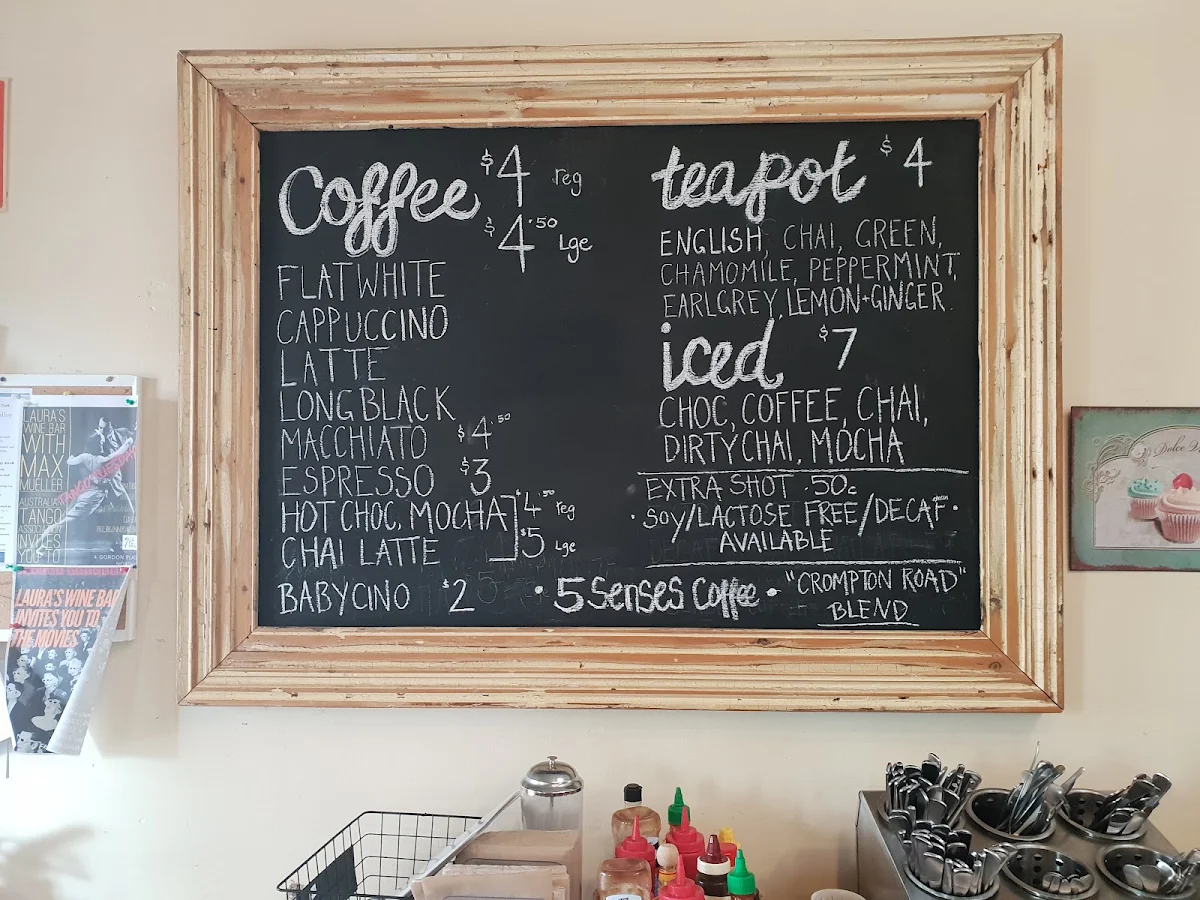 Coffee $4 reg
$4.50 Lge
FLAT WHITE
CAPPUCCINO
LATTE
LONG BLACK
MACCHIATO $4.50
ESPRESSO $3
HOT CHOC, MOCHA $4.50 reg
CHAI LATTE $5 Lge
BABYCINO $2
teapot $4
ENGLISH, CHAI, GREEN,
CHAMOMILE, PEPPERMINT,
EARLGREY, LEMON+GINGER
iced $7
CHOC, COFFEE, CHAI,
DIRTY CHAI, MOCHA
EXTRA SHOT .50c
• SOY/LACTOSE FREE/DECAF •
AVAILABLE
• 5 Senses Coffee • "CROMPTON ROAD"
BLEND
LAURA'S
WINE BAR
WITH
MAX
MUELLER
AUSTRALIA
TANGO
INVITES
YOU TO
LAURA'S WINE BAR
INVITES YOU TO
THE MOVIES
Dolce